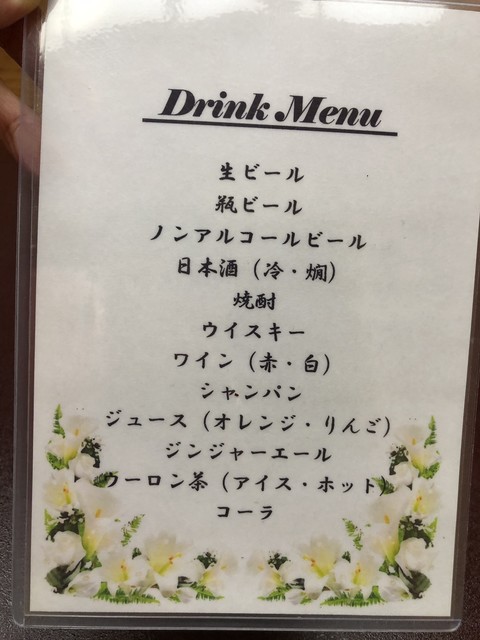 Drink Menu
生ビール
瓶ビール
ノンアルコールビール
日本酒（冷・燗）
焼酎
ウイスキー
ワイン（赤・白）
シャンパン
ジュース（オレンジ・りんご）
ジンジャーエール
ウーロン茶（アイス・ホット）
コーラ